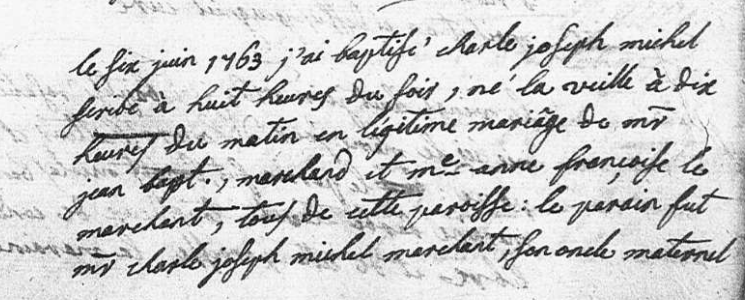 le six juin 1763 j'ai baptisé charle joseph michel
scribe à huit heures du soir, né la veille à dix
heures du matin en légitime mariâge de mr
jean bapt., marchand et me anne françoise le
marchant, tous de cette paroisse: le parain fut
mr charle joseph michel marchant, son oncle maternel